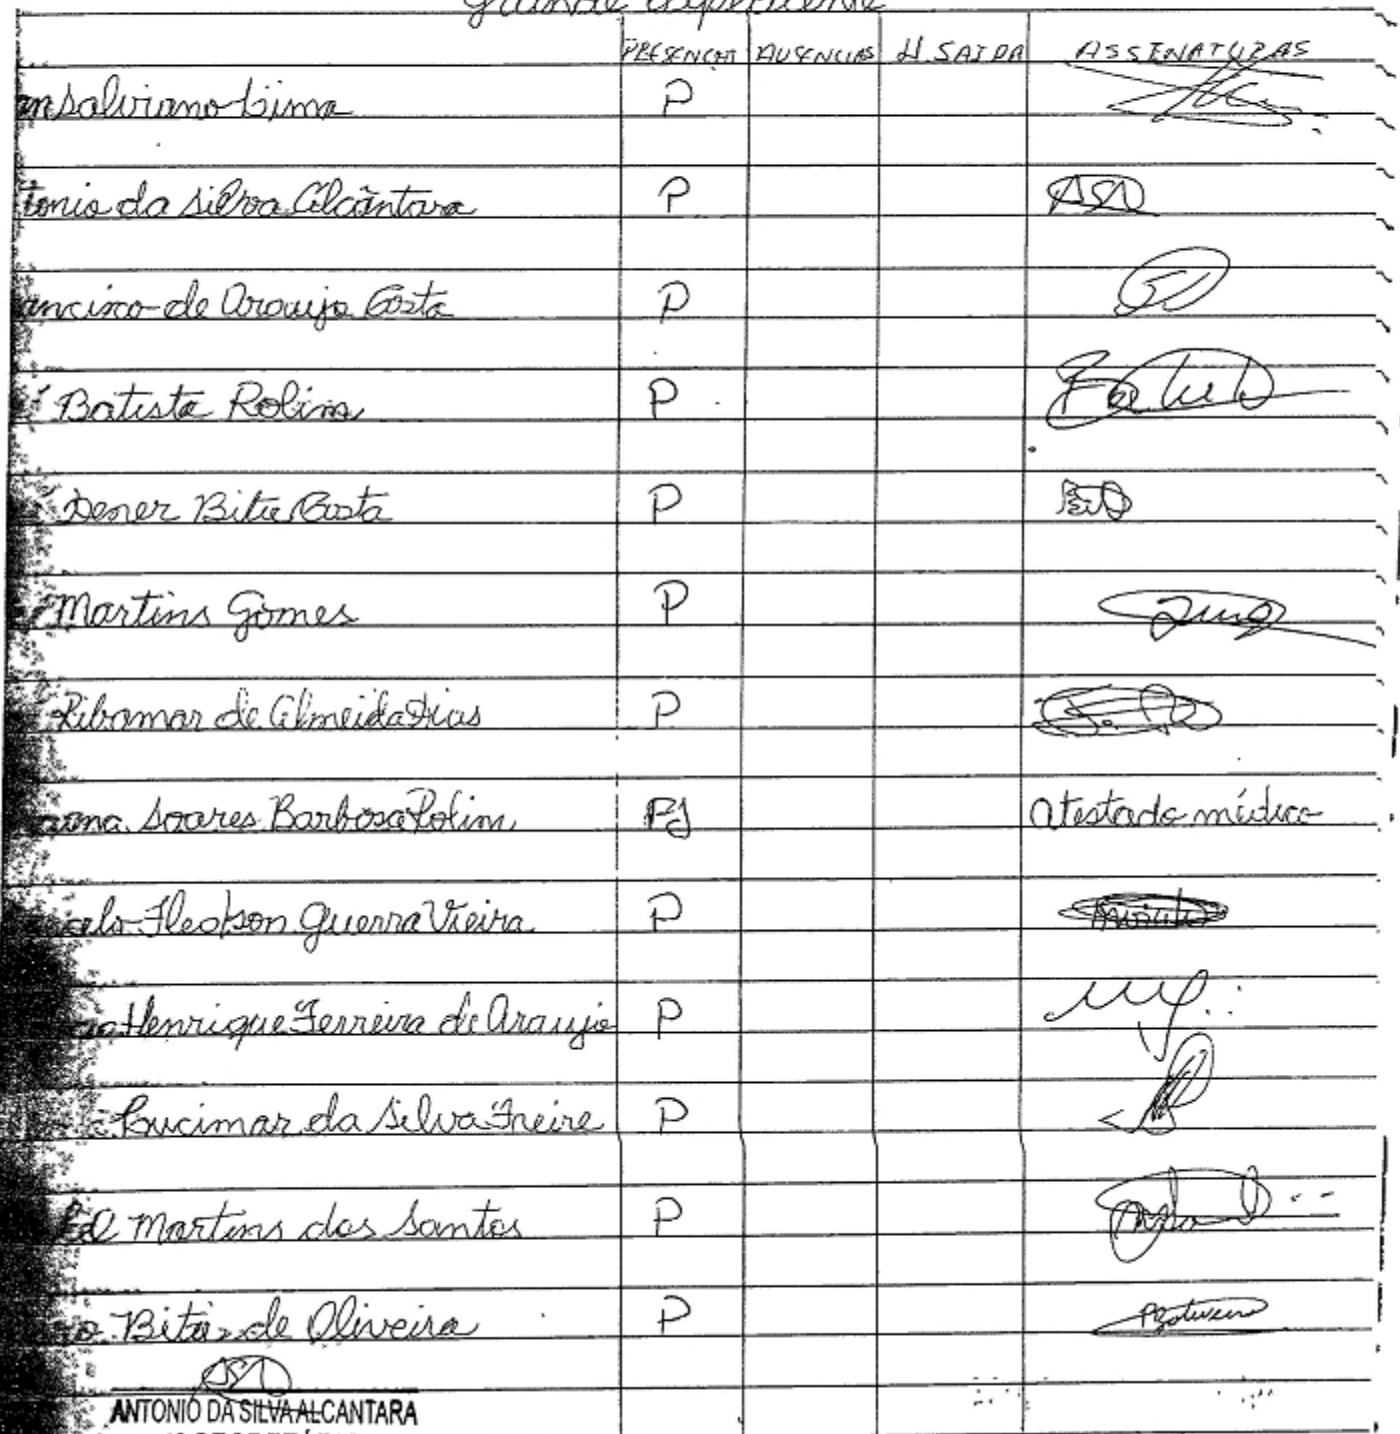 Grande Expediente
PRESENÇAS AUSENCIAS H. SAIDA ASSINATURAS
an Salviano Lima P
tonio da Silva Alcântara P ASA
ancisco de Araujo Costa P
Batista Rolim P
Dener Bitu Costa P
Martins Gomes P
Ribamar de Almeida Dias P
Soares Barbosa Rolim FJ Atestado médico
celo Guerra Vieira P
Henrique Ferreira de Araujo P
Lucimar da Silva Freire P
Martins dos Santos P
Bitu de Oliveira P
ASA
ANTONIO DA SILVA ALCANTARA